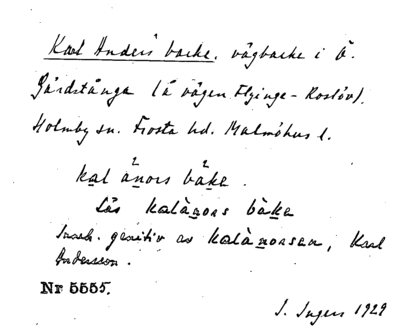 Karl Anders' backe. vägbacke i Ö.
Gårdstånga (å vägen Flyinge - Roslöv).
Holmby sn. Frosta hd. Malmöhus l.
kal ànors bàke.
Läs kalànors bàke
genitiv av kalànorsen, Karl
Andersson.
Nr 5555.
I. Ingers 1929